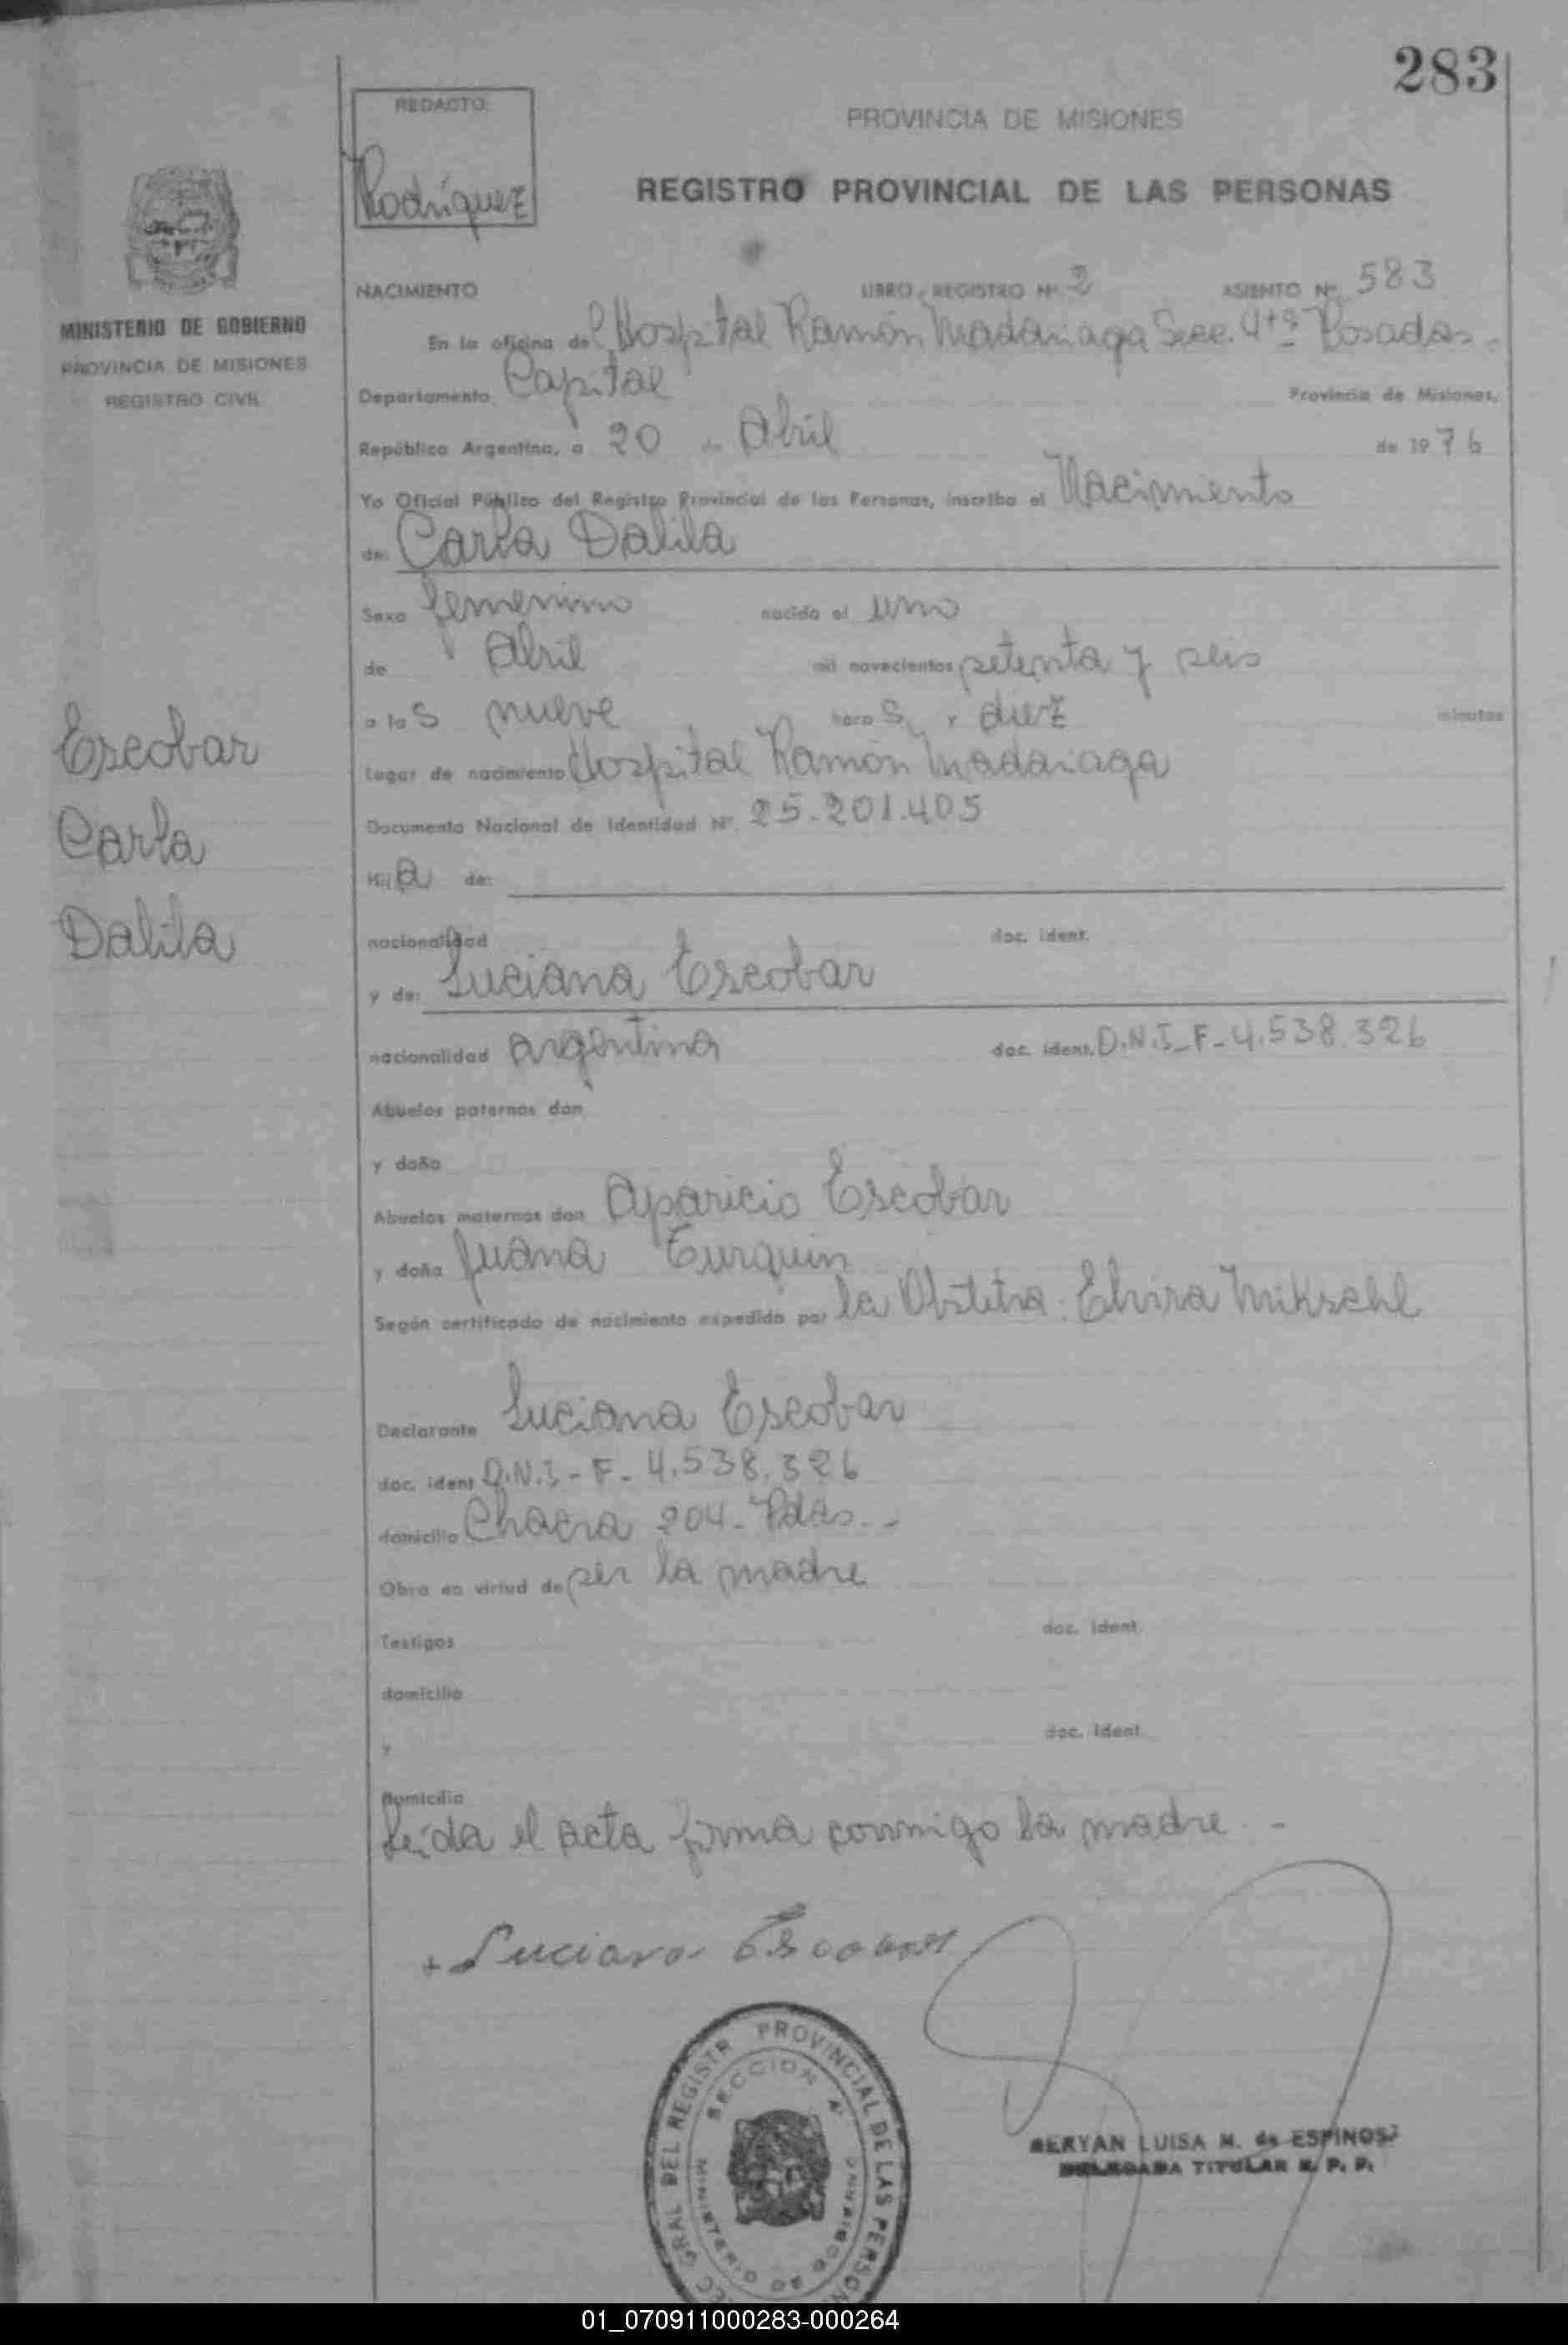 283
REDACTO
Rodríguez
PROVINCIA DE MISIONES
REGISTRO PROVINCIAL DE LAS PERSONAS
MINISTERIO DE GOBIERNO
PROVINCIA DE MISIONES
REGISTRO CIVIL
NACIMIENTO LIBRO - REGISTRO Nº 2 ASIENTO Nº 583
En la oficina del Hospital Ramón Madariaga Secc. 4ta Posadas.
Departamento Capital Provincia de Misiones,
República Argentina, a 20 de Abril de 1976
Yo Oficial Público del Registro Provincial de las Personas, inscribo el Nacimiento
de: Carla Dalila
Sexo femenino nacido el uno
de Abril mil novecientos setenta y seis
a las nueve horas y diez minutos
Lugar de nacimiento Hospital Ramón Madariaga
Documento Nacional de Identidad Nº 25.201.405
Hija de:
nacionalidad doc. ident.
y de: Luciana Escobar
nacionalidad argentina doc. ident. D.N.I-F-4.538.326
Abuelos paternos don
y doña
Abuelos maternos don Aparicio Escobar
y doña Juana Turquin
Según certificado de nacimiento expedido por la Obstetra: Elvira Mikschl
Declarante Luciana Escobar
doc. ident D.N.I-F-4.538.326
domicilio Chacra 204-Pdas.-
Obra en virtud de ser la madre
Testigos doc. ident
domicilio
y doc. ident
Domicilio
Leída el acta firma conmigo la madre.-
Escobar
Carla
Dalila
+ Luciana Escobar
GRAL DEL REGISTR PROVINCIAL DE LAS PERSON
SECCION
MINISTERIO DE GOBIERNO
LUISA M. de ESPINOSA
DELEGADA TITULAR R. P. P.
01_070911000283-000264